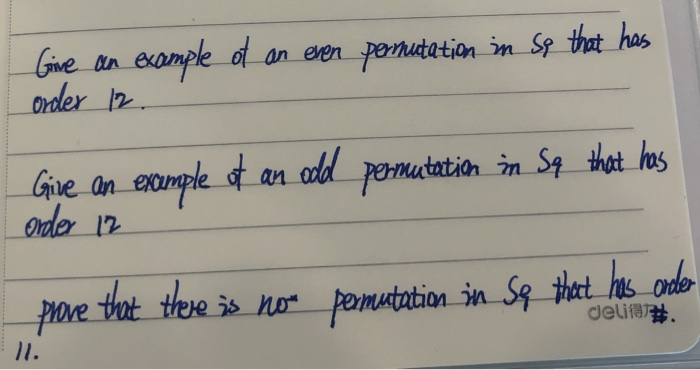 Give an example of an even permutation in S9 that has
order 12.
Give an example of an odd permutation in S9 that has
order 12
prove that there is no permutation in S9 that has order
deli得力 #.
11.